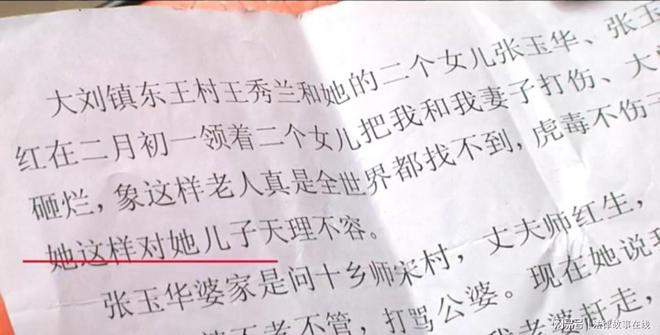 大刘镇东王村王秀兰和她的二个女儿张玉华、张玉
红在二月初一领着二个女儿把我和我妻子打伤、大
砸烂，象这样老人真是全世界都找不到，虎毒不伤子
她这样对她儿子天理不容。
张玉华婆家是问十乡师宋村，丈夫师红生，
老不管，打骂公婆。现在她说
老婆赶走，
搜狐号@法律故事在线